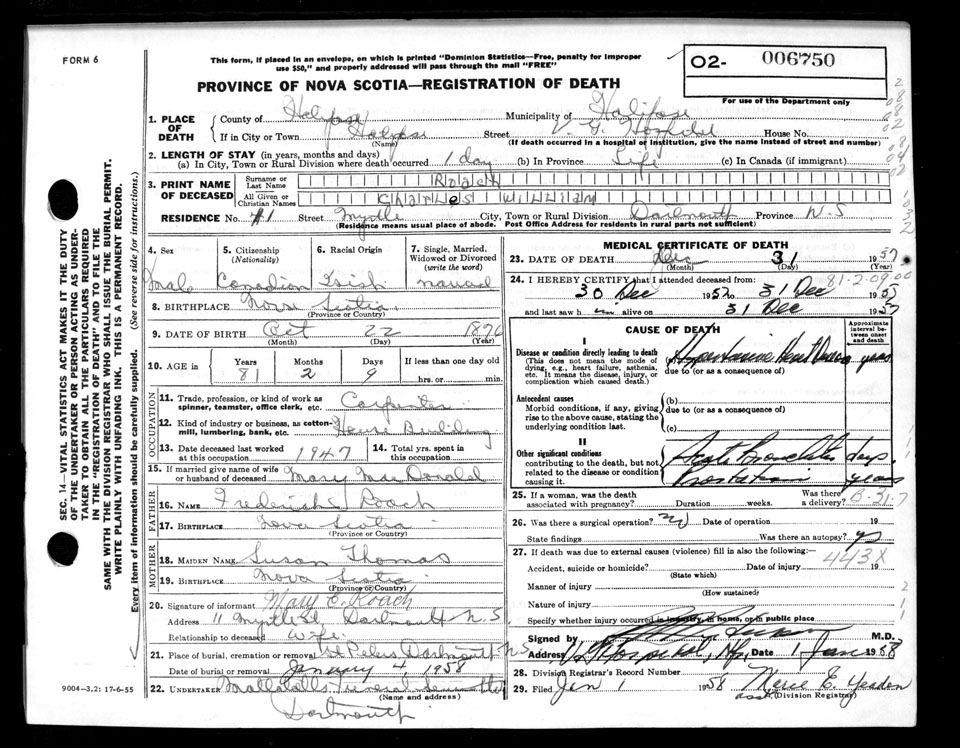 FORM 6
This form, if placed in an envelope, on which is printed "Dominion Statistics—Free, penalty for improper
use $50," and properly addressed will pass through the mail "FREE"
O2- 006750
For use of the Department only
PROVINCE OF NOVA SCOTIA—REGISTRATION OF DEATH
1. PLACE OF DEATH
County of Halifax Municipality of Halifax
If in City or Town Halifax Street V. G. Hospital House No.
(Name) (If death occurred in a hospital or institution, give the name instead of street and number)
2. LENGTH OF STAY (in years, months and days)
(a) In City, Town or Rural Division where death occurred 1 day (b) In Province Life (c) In Canada (if immigrant)
3. PRINT NAME OF DECEASED
Surname or Last Name Roach
All Given or Christian Names Charles William
RESIDENCE No. 11 Street Myrtle City, Town or Rural Division Dartmouth Province N.S
(Residence means usual place of abode. Post Office Address for residents in rural parts not sufficient)
4. Sex Male
5. Citizenship (Nationality) Canadian
6. Racial Origin Irish
7. Single, Married, Widowed or Divorced (write the word) married
8. BIRTHPLACE Nova Scotia
(Province or Country)
9. DATE OF BIRTH Oct 22 1876
(Month) (Day) (Year)
10. AGE in Years 81 Months 2 Days 9 If less than one day old
hrs. or min.
OCCUPATION
11. Trade, profession, or kind of work as spinner, teamster, office clerk, etc. Carpenter
12. Kind of industry or business, as cotton-mill, lumbering, bank, etc. House Building
13. Date deceased last worked at this occupation 1947
14. Total yrs. spent in this occupation
15. If married give name of wife or husband of deceased Mary MacDonald
FATHER
16. NAME Frederick Roach
17. BIRTHPLACE Nova Scotia
(Province or Country)
MOTHER
18. MAIDEN NAME Susan Thomas
19. BIRTHPLACE Nova Scotia
(Province or Country)
20. Signature of informant Mary E. Roach
Address 11 Myrtle St Dartmouth N.S
Relationship to deceased Wife
21. Place of burial, cremation or removal St Peters Dartmouth N.S
Date of burial or removal January 4 1958
22. UNDERTAKER Mattatalls Funeral
(Name and address)
Dartmouth
MEDICAL CERTIFICATE OF DEATH
23. DATE OF DEATH Dec 31 1957
(Month) (Day) (Year)
24. I HEREBY CERTIFY that I attended deceased from: 81-2-09-00
30 Dec 1957 to 31 Dec 1957
and last saw h im alive on 31 Dec 1957
CAUSE OF DEATH
Approximate interval between onset and death
I
Disease or condition directly leading to death
(This does not mean the mode of dying, e.g., heart failure, asthenia, etc. It means the disease, injury, or complication which caused death.)
(a) Hypertensive Heart Disease years
due to (or as a consequence of)
Antecedent causes
Morbid conditions, if any, giving rise to the above cause, stating the underlying condition last.
(b)
due to (or as a consequence of)
(c)
II
Other significant conditions
contributing to the death, but not related to the disease or condition causing it.
Acute Bronchitis days
years
25. If a woman, was the death associated with pregnancy? Duration weeks. Was there a delivery?
B-31-7
26. Was there a surgical operation? no Date of operation 19
State findings Was there an autopsy?
27. If death was due to external causes (violence) fill in also the following:—
443X
Accident, suicide or homicide? Date of injury 19
(State which)
Manner of injury
(How sustained)
Nature of injury
Specify whether injury occurred in industry, in home, or in public place
Signed by M.D.
Address V G Hospital, Hfx, Date 1 Jan 1958
28. Division Registrar's Record Number
29. Filed Jan 1 1958 Marie E. Yeadon
asst (Division Registrar)
SEC. 14—VITAL STATISTICS ACT MAKES IT THE DUTY
OF THE UNDERTAKER OR PERSON ACTING AS UNDER-
TAKER TO OBTAIN ALL THE PARTICULARS REQUIRED
IN THE "REGISTRATION OF DEATH" AND TO FILE THE
SAME WITH THE DIVISION REGISTRAR WHO SHALL ISSUE THE BURIAL PERMIT.
WRITE PLAINLY WITH UNFADING INK. THIS IS A PERMANENT RECORD.
Every item of information should be carefully supplied. (See reverse side for instructions.)
9004-3.2: 17-6-55